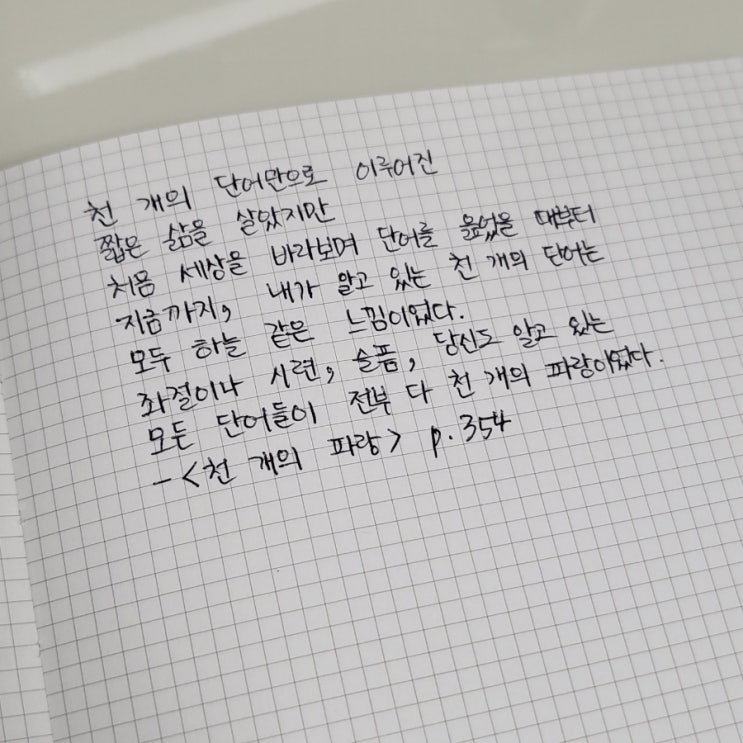 천 개의 단어만으로 이루어진
짧은 삶을 살았지만
처음 세상을 바라보며 단어를 읊었을 때부터
지금까지, 내가 알고 있는 천 개의 단어는
모두 하늘 같은 느낌이었다.
좌절이나 시련, 슬픔, 당신도 알고 있는
모든 단어들이 전부 다 천 개의 파랑이었다.
-<천 개의 파랑> p.354